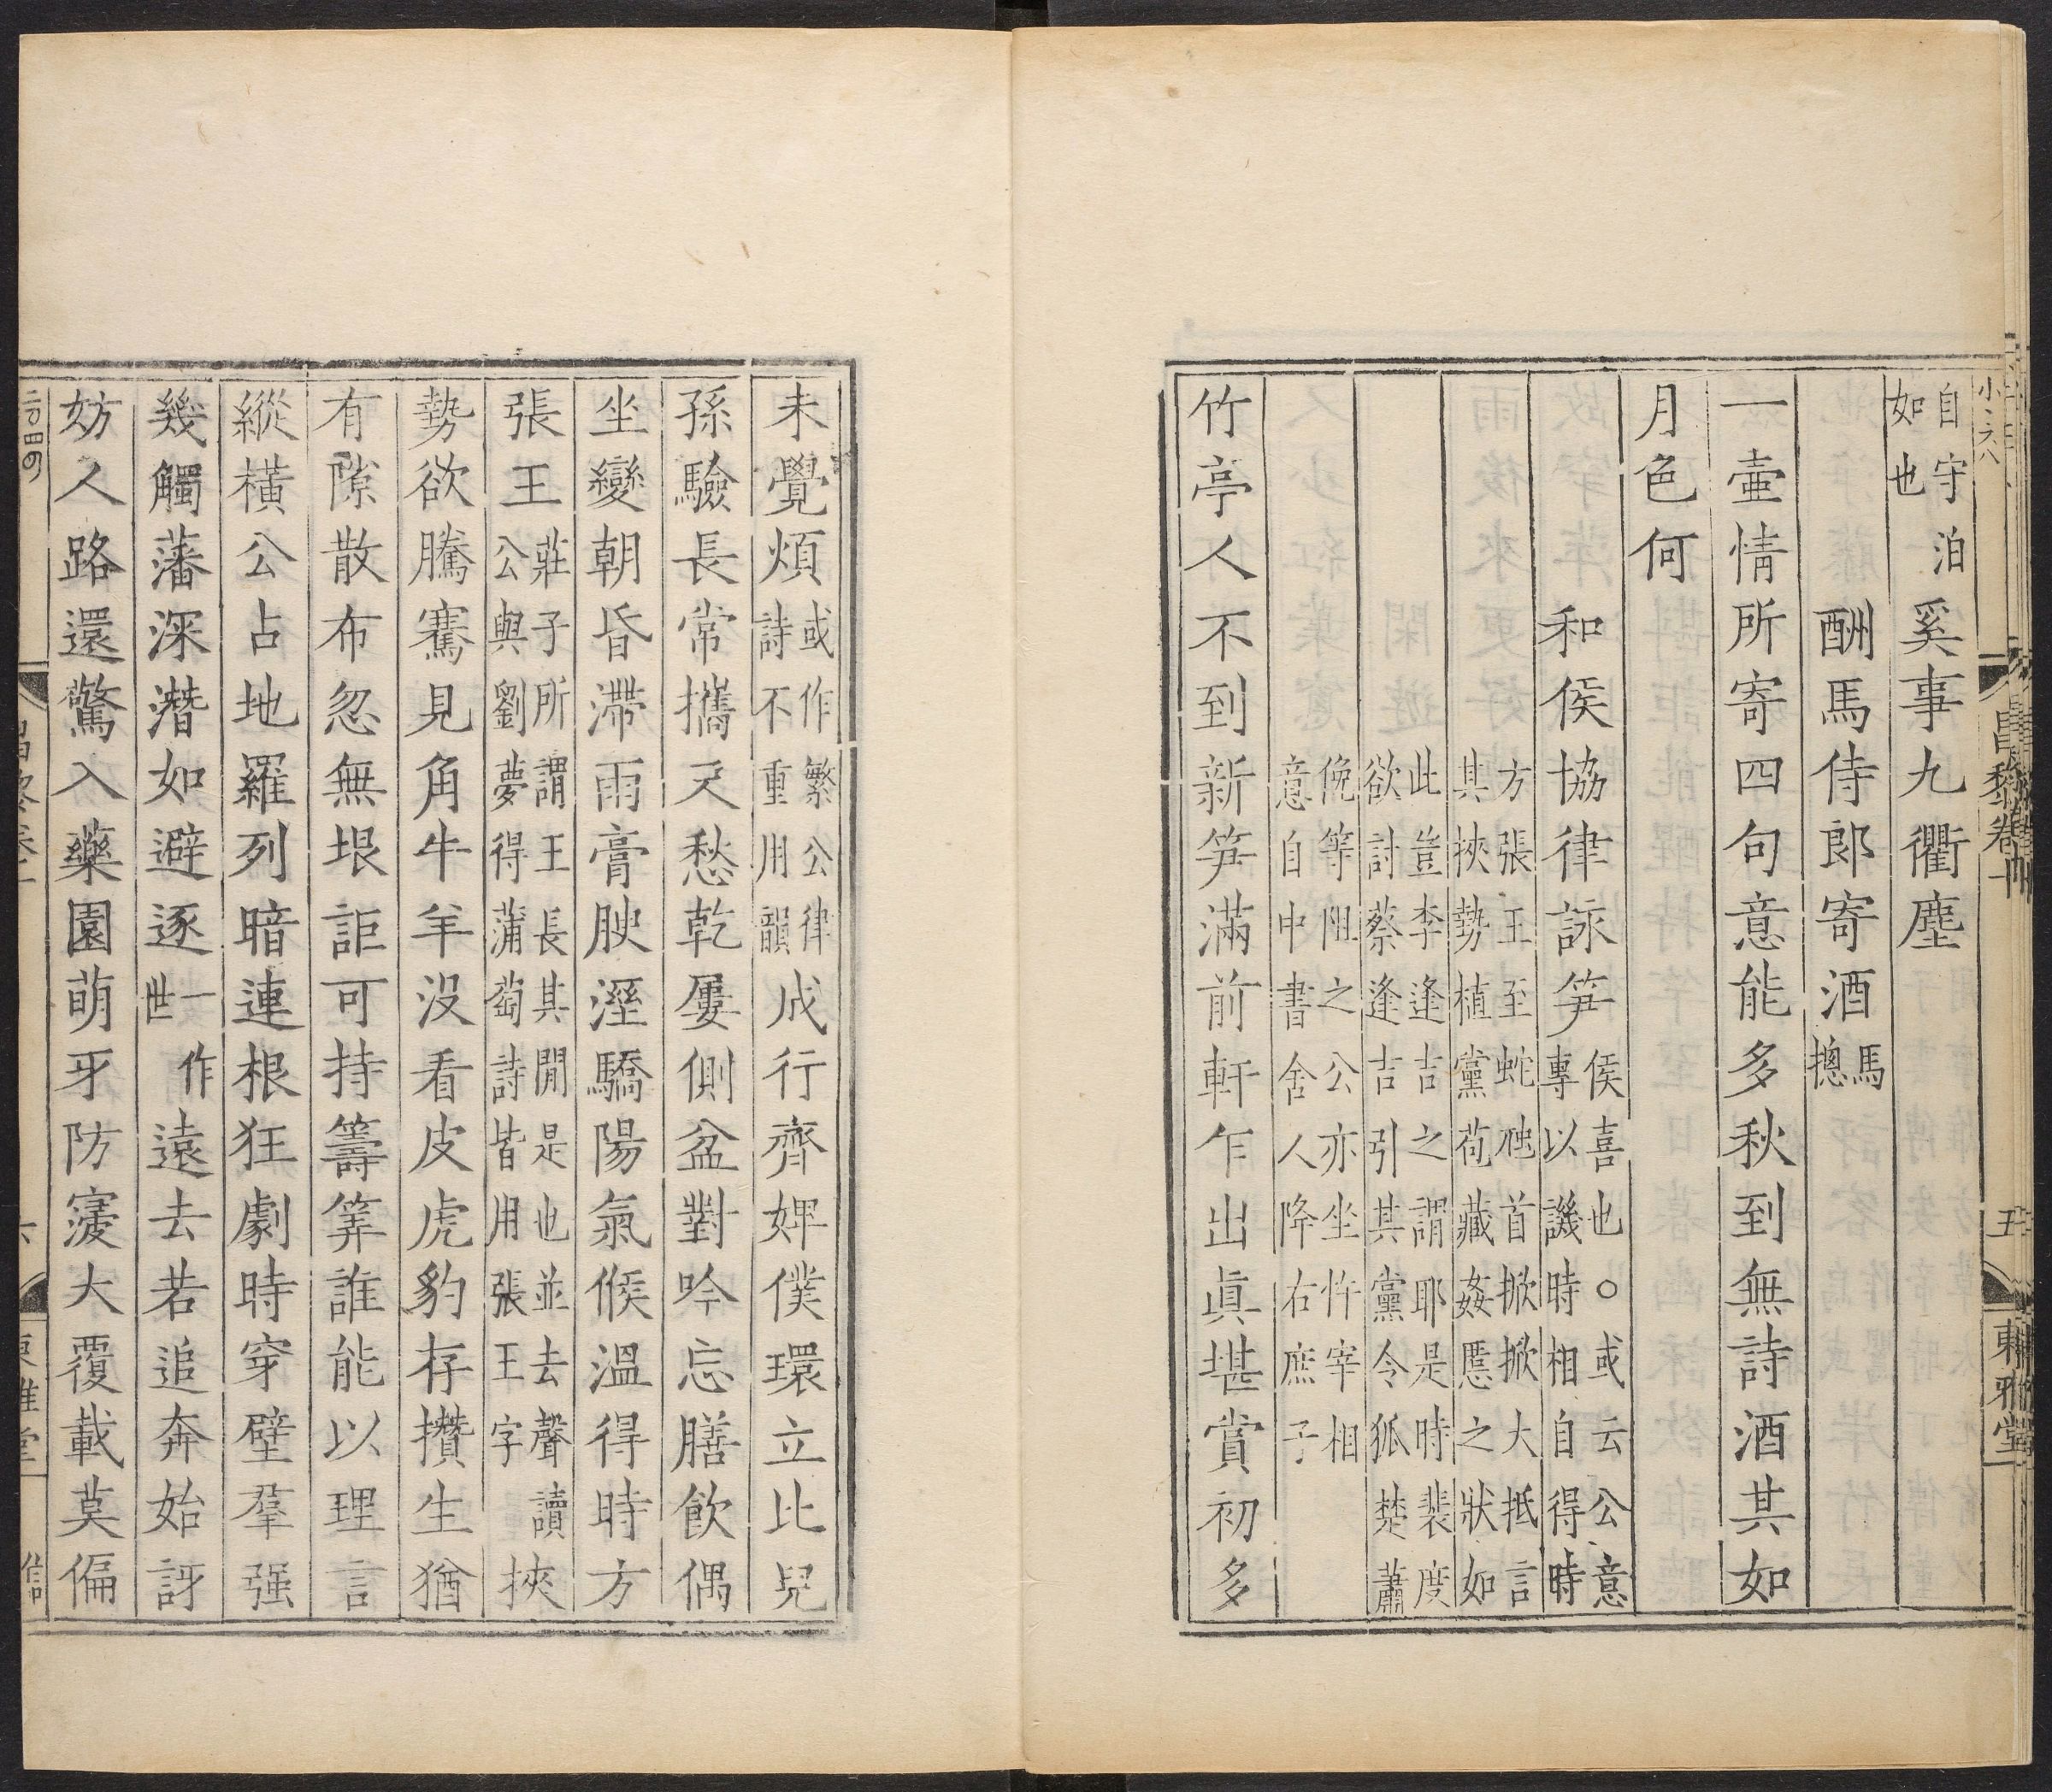 自守泊
如也
奚事九衢塵
酬馬侍郎寄酒
馬
摠
一壷情所寄四句意能多秋到無詩酒其如
月色何
和侯協律詠笋
侯喜也○或云公意
專以譏時相自得時
方張王至蛇虺首掀掀大抵言
其挾勢植黨苞藏姦慝之狀如
此豈李逢吉之謂耶是時裴度
欲討蔡逢吉引其黨令狐楚蕭
俛等阻之公亦坐忤宰相
意自中書舍人降右庶子
竹亭人不到新笋滿前軒乍出眞堪賞初多
未覺煩
或作繁公律
詩不重用韻
成行齊婢僕環立比兒
孫驗長常攜尺愁乾屢側盆對吟忘膳飲偶
坐變朝昏滯雨膏腴溼驕陽氣候溫得時方
張王
莊子所謂王長其閒是也並去聲讀
公與劉夢得蒲萄詩皆用張王字
挾
勢欲騰騫見角牛羊沒看皮虎豹存攢生猶
有隙散布忽無垠詎可持籌筭誰能以理言
縱橫公占地羅列暗連根狂劇時穿壁羣强
幾觸藩深潛如避逐
一作
世
遠去若追奔始訝
妨人路還驚入藥園萌牙防寖大覆載莫偏
昌黎卷十
五
東雅堂
六